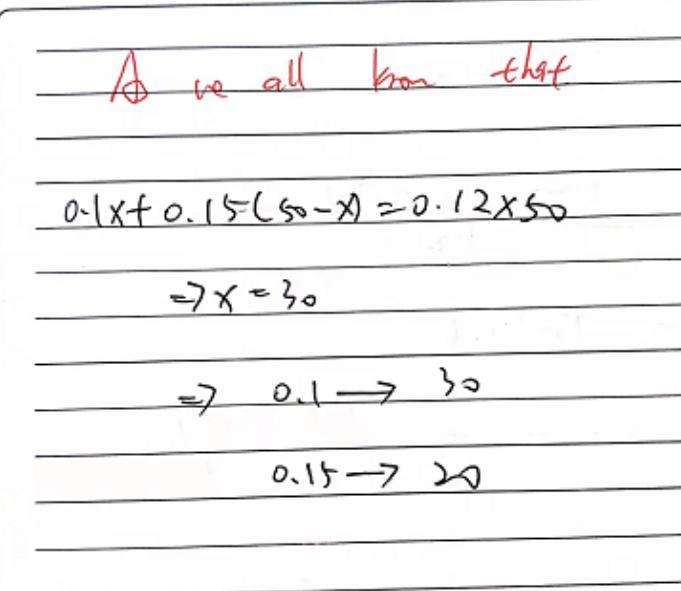 As we all know that
0.1x+0.15(50-x)=0.12×50
=>x=30
=> 0.1→30
0.15→20